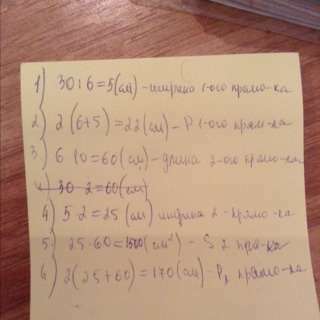 1) 30:6=5(см) - ширина 1-ого прямо-ка
2) 2(6+5)=22(см) - P 1-ого прям-ка
3) 6·10=60(см) - длина 2-ого прямо-ка
4) 30·2=60(см)
4) 5·2=25(см) ширина 2-прямо-ка
5. 25·60=1500(см²) - S 2 пря-ка
6) 2(25+60)=170(см) - P₂ прямо-ка